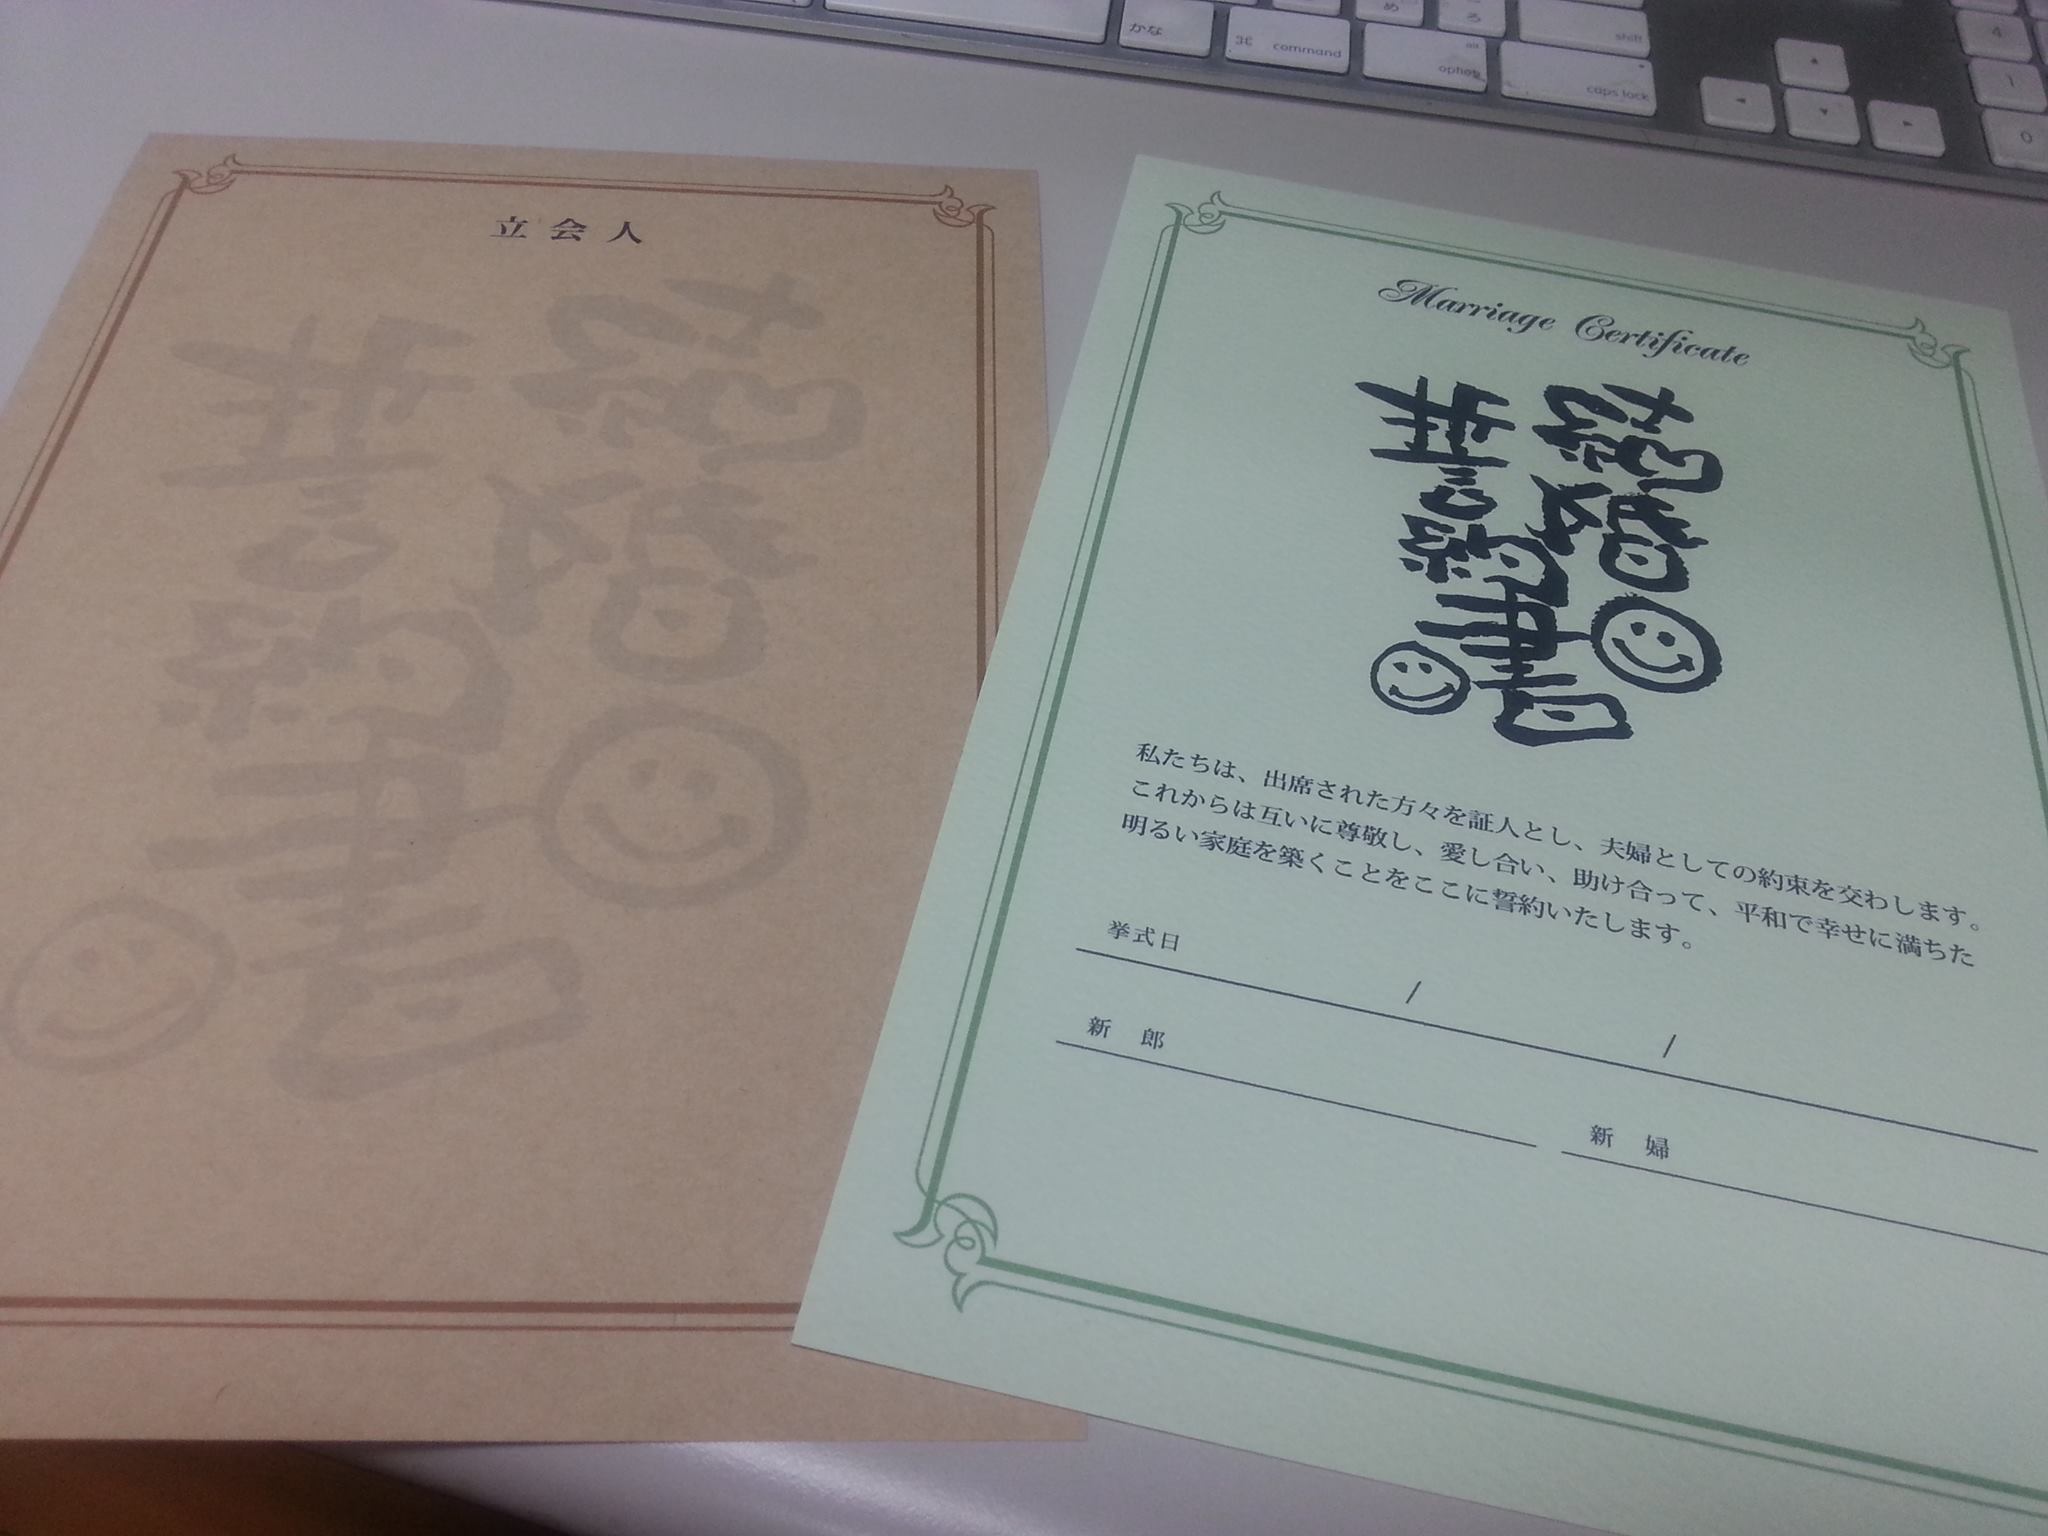 かな
⌘ command
alt
option
め
ろ
shift
caps lock
4
1
0
立会人
結婚
誓約書
Marriage Certificate
結婚
誓約書
私たちは、出席された方々を証人とし、夫婦としての約束を交わします。
これからは互いに尊敬し、愛し合い、助け合って、平和で幸せに満ちた
明るい家庭を築くことをここに誓約いたします。
挙式日 / /
新 郎
新 婦